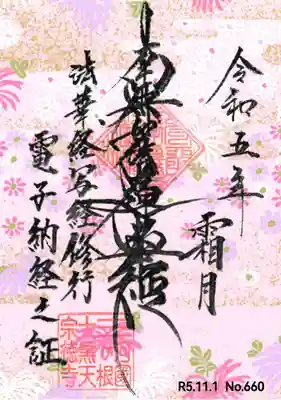 令和五年
霜月
南無妙法蓮華経
法華経写経修行
電子納経之証
大黒天
宗徳寺
R5.11.1 No.660